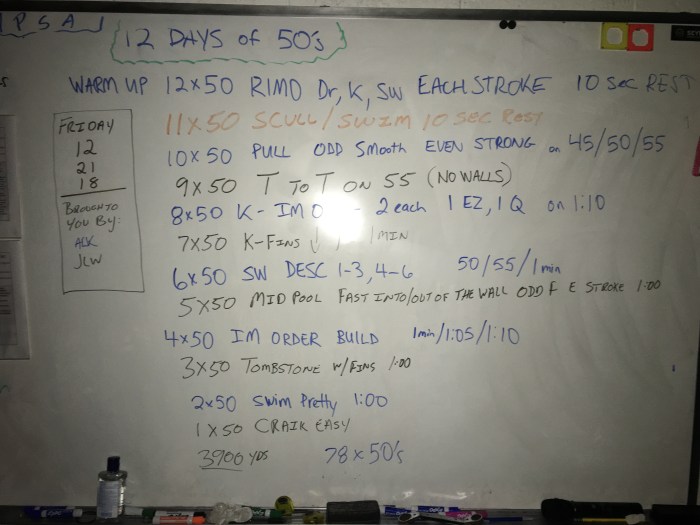 PSA
12 DAYS of 50's
WARM UP 12x50 RIMO Dr, K, SW EACH STROKE 10 Sec REST
11x50 SCULL/SWIM 10 Sec Rest
10x50 PULL ODD Smooth EVEN STRONG on 45/50/55
9x50 T TO T ON 55 (NO WALLS)
8x50 K-IMO - 2 each 1 EZ, 1 Q on 1:10
7x50 K-FINS ↓ 1 MIN
6x50 SW DESC 1-3, 4-6 50/55/1min
5x50 MID POOL FAST INTO/OUT OF THE WALL ODD F E STROKE 1:00
4x50 IM ORDER BUILD 1min/1:05/1:10
3x50 TOMBSTONE W/FINS 1:00
2x50 Swim Pretty 1:00
1x50 CRAIK EASY
3900 YDS 78x50's
FRIDAY
12
21
18
BROUGHT TO
YOU BY:
ALK
JLW